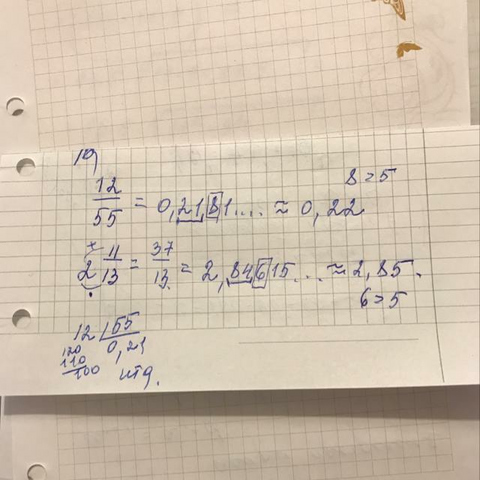 19)
8 > 5
12/55 = 0,2181.... ≈ 0,22
2 11/13 = 37/13 = 2,84615... ≈ 2,85.
6 > 5
12 | 55
120 0,21
110
100 итд.